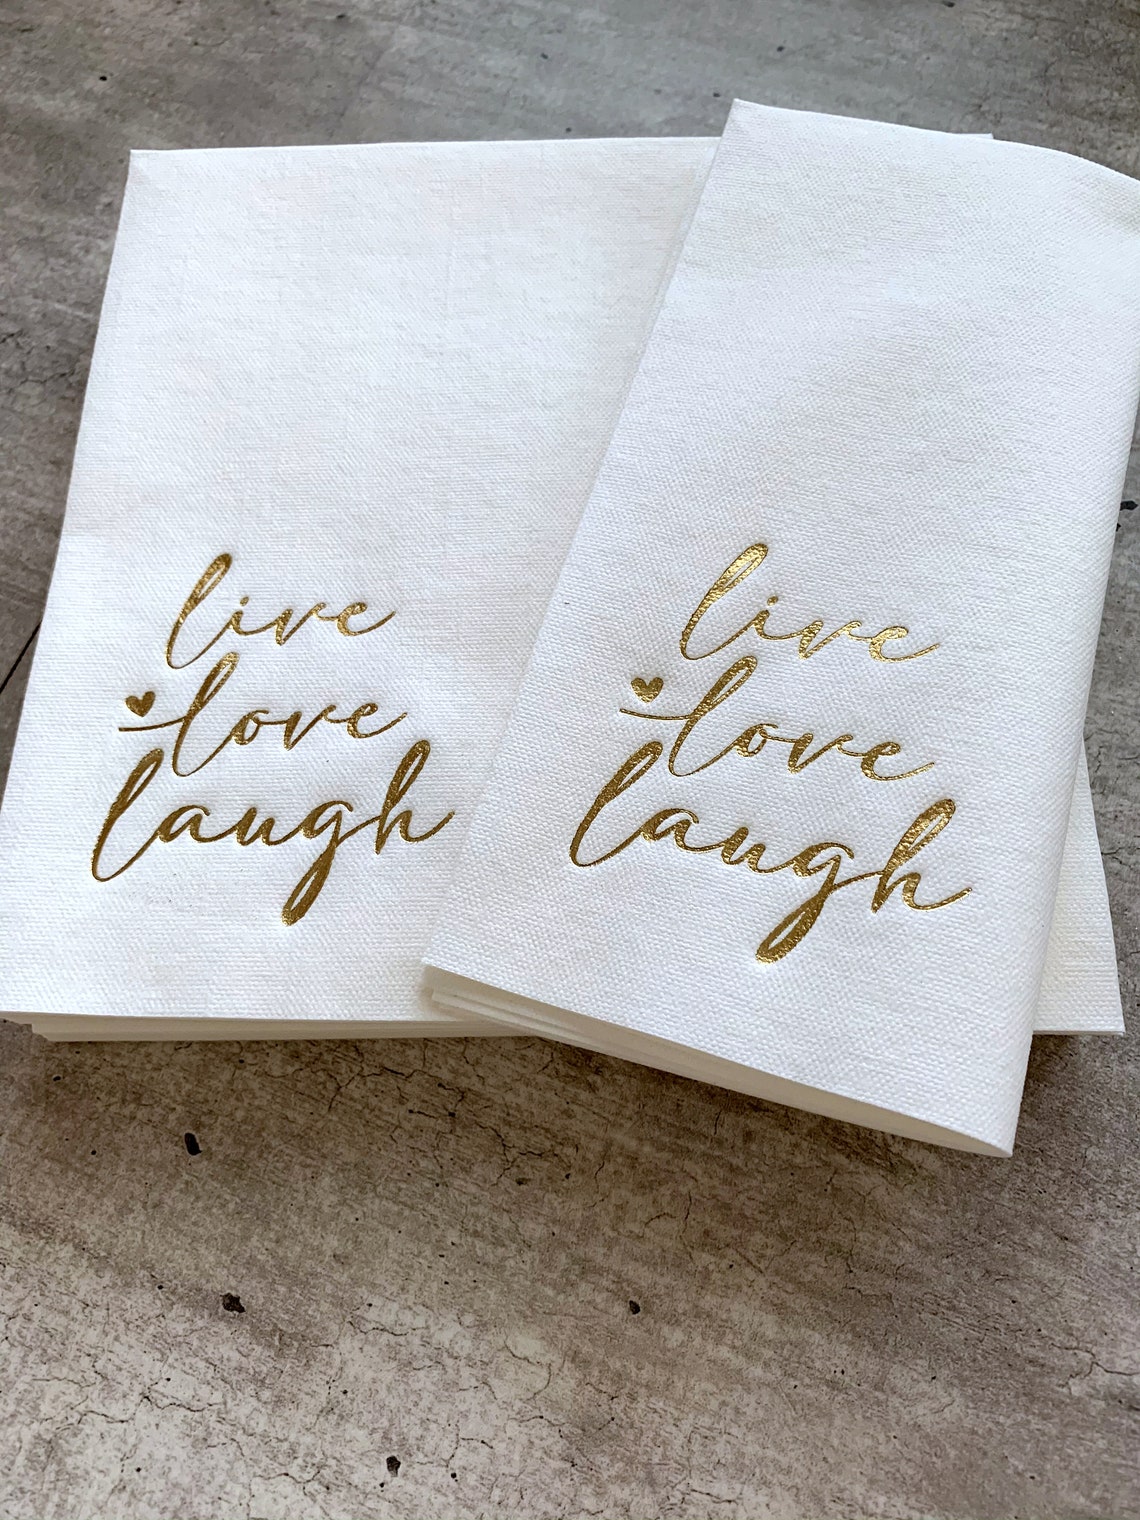 live
love
laugh
live
love
laugh